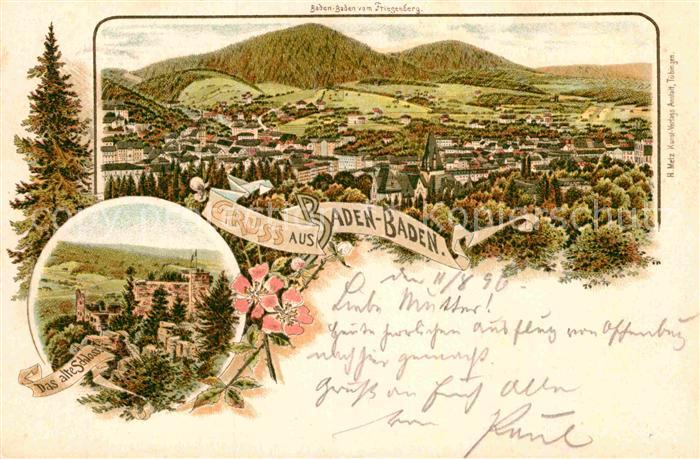 Baden-Baden vom Friesenberg.
H. Metz Kunst-Verlags-Anstalt, Tübingen.
GRUSS AUS BADEN-BADEN.
Das alte Schloss
den 11/8 96.
Liebe Mutter!
Heute herrlichen Ausflug von Offenburg
nach hier gemacht.
Gruß an Euch Alle
von Paul